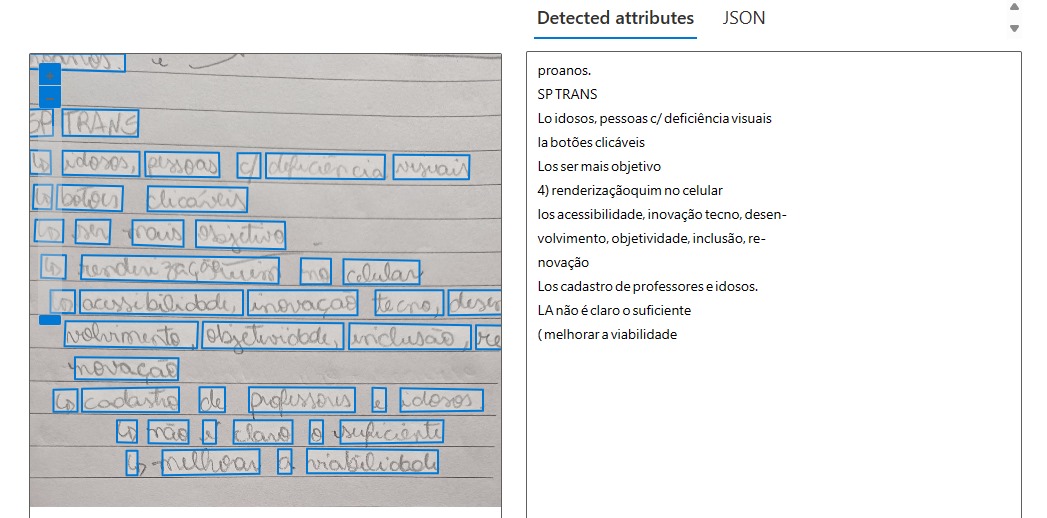 Detected attributes
JSON
SP TRANS
↳ idosos, pessoas c/ deficiência visuais
↳ botões clicáveis
↳ ser mais objetivo
↳ renderização no celular
↳ acessibilidade, inovação tecno, desen
volvimento, objetividade, inclusão, re
novação
↳ cadastro de professores e idosos
↳ não é claro o suficiente
↳ melhorar a viabilidade
proanos.
SP TRANS
Lo idosos, pessoas c/ deficiência visuais
la botões clicáveis
Los ser mais objetivo
4) renderizaçãoquim no celular
los acessibilidade, inovação tecno, desen-
volvimento, objetividade, inclusão, re-
novação
Los cadastro de professores e idosos.
LA não é claro o suficiente
( melhorar a viabilidade